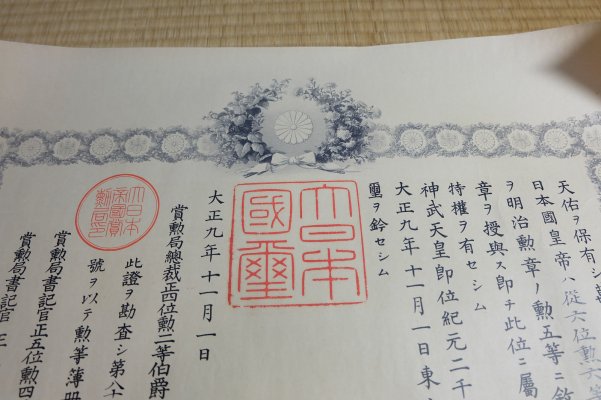 天佑ヲ保有シ
日本國皇帝ハ從六位勲六等
ヲ明治勲章ノ勲五等ニ敍
章ヲ授與ス即チ此位ニ屬
特權ヲ有セシム
神武天皇即位紀元二千
大正九年十一月一日東
璽ヲ鈐セシム
大日本國璽
大正九年十一月一日
賞勲局總裁正四位勲二等伯爵
大日本帝國賞勲局印
此證ヲ勘査シ第八十
號ヲ以テ勲等簿冊
賞勲局書記官正五位勲四
賞勲局書記官正